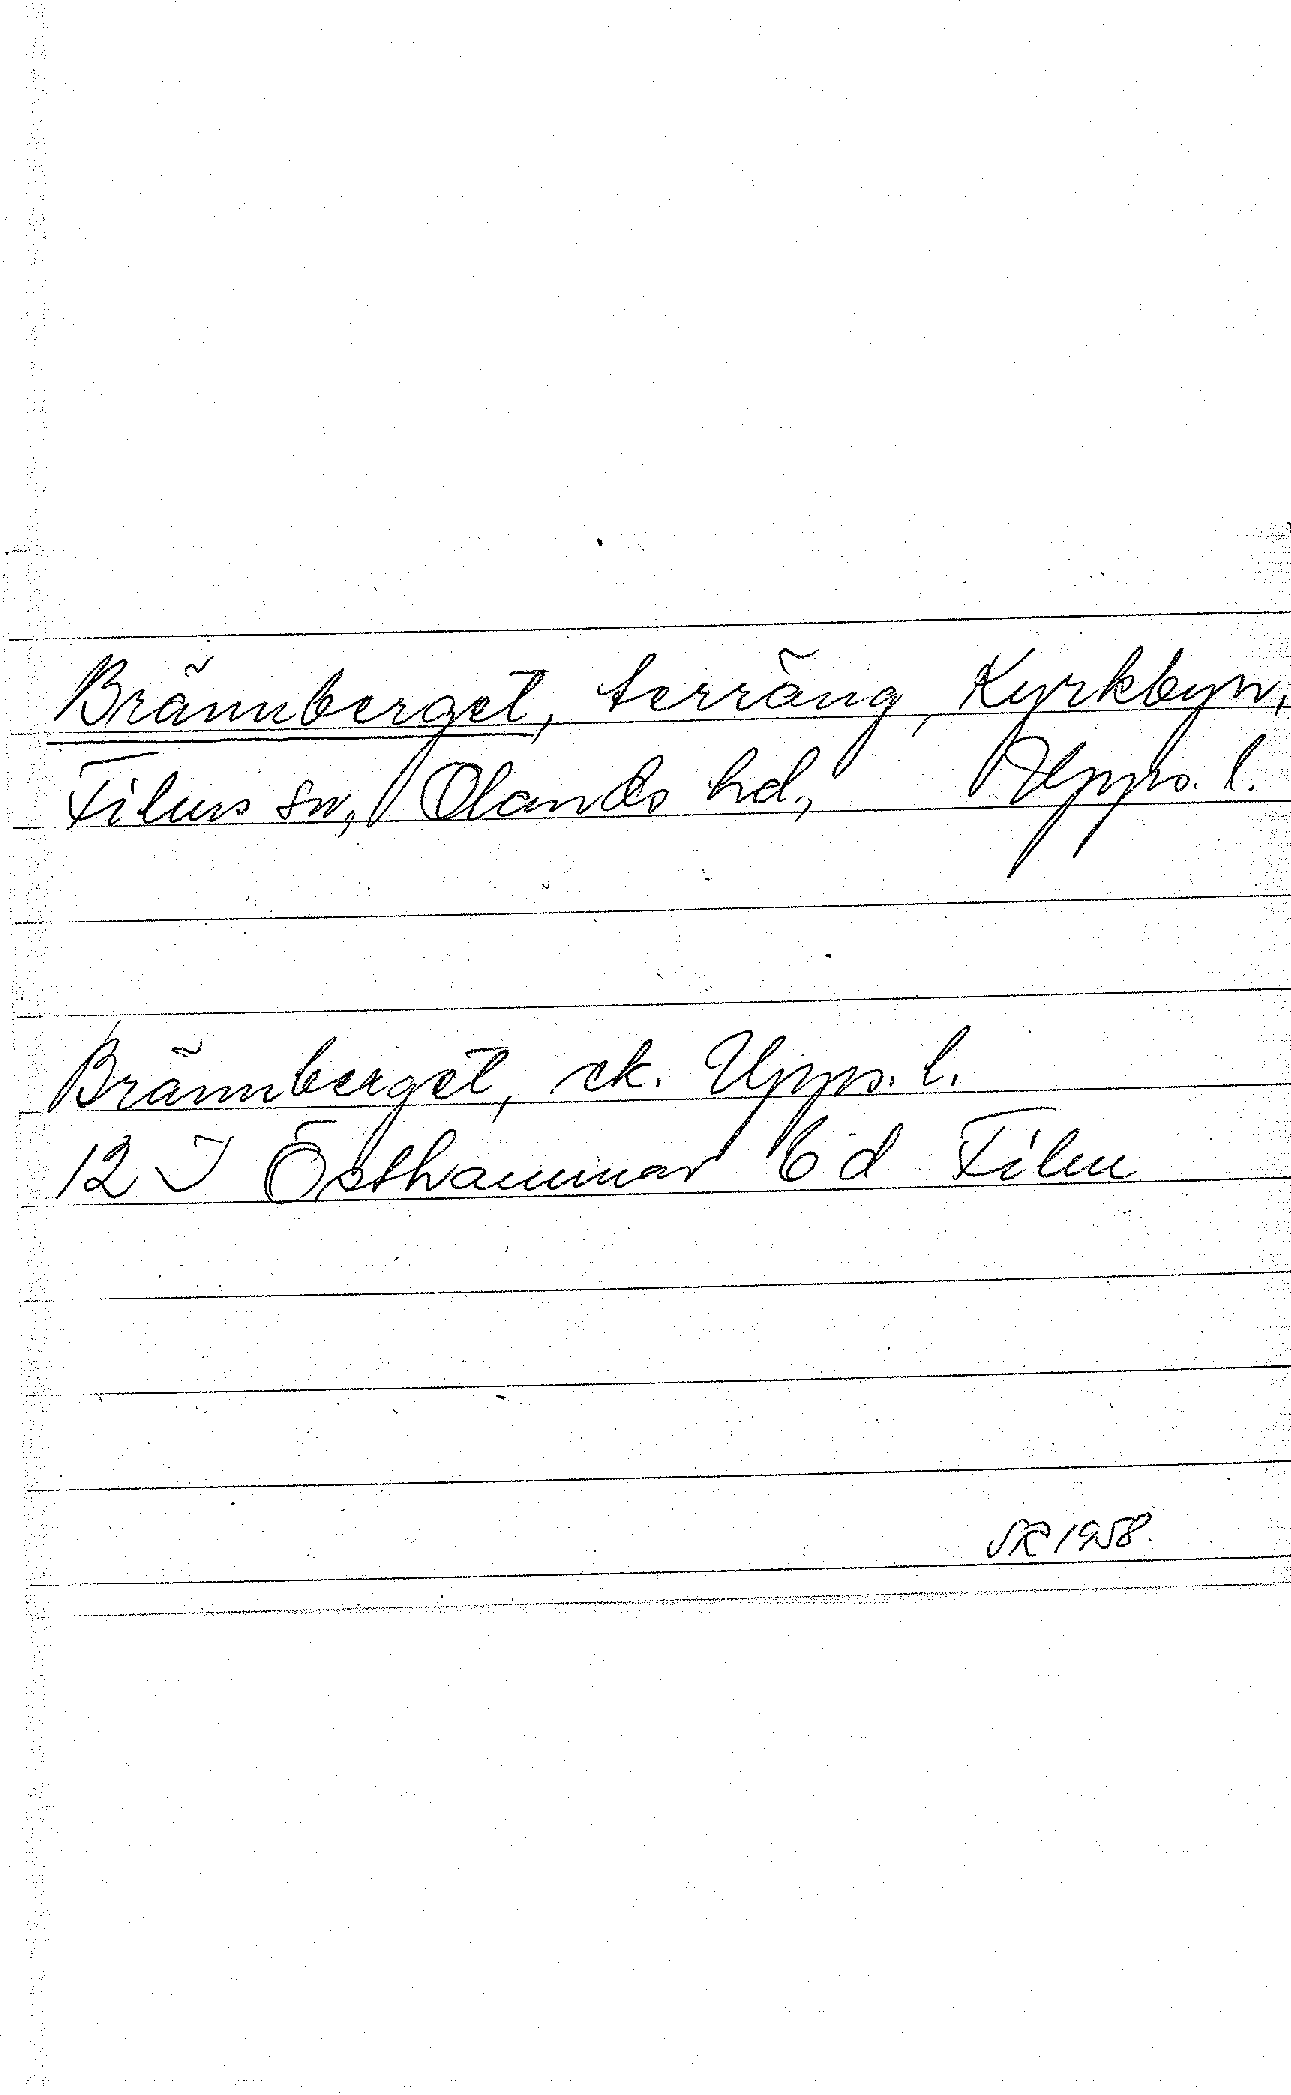 Brännberget, terräng, Kyrkbyn,
Films sn, Olands hd, Upps. l.
Brännberget, ek. Upps. l.
12 I Östhammar 6 d Film
SR 1958.